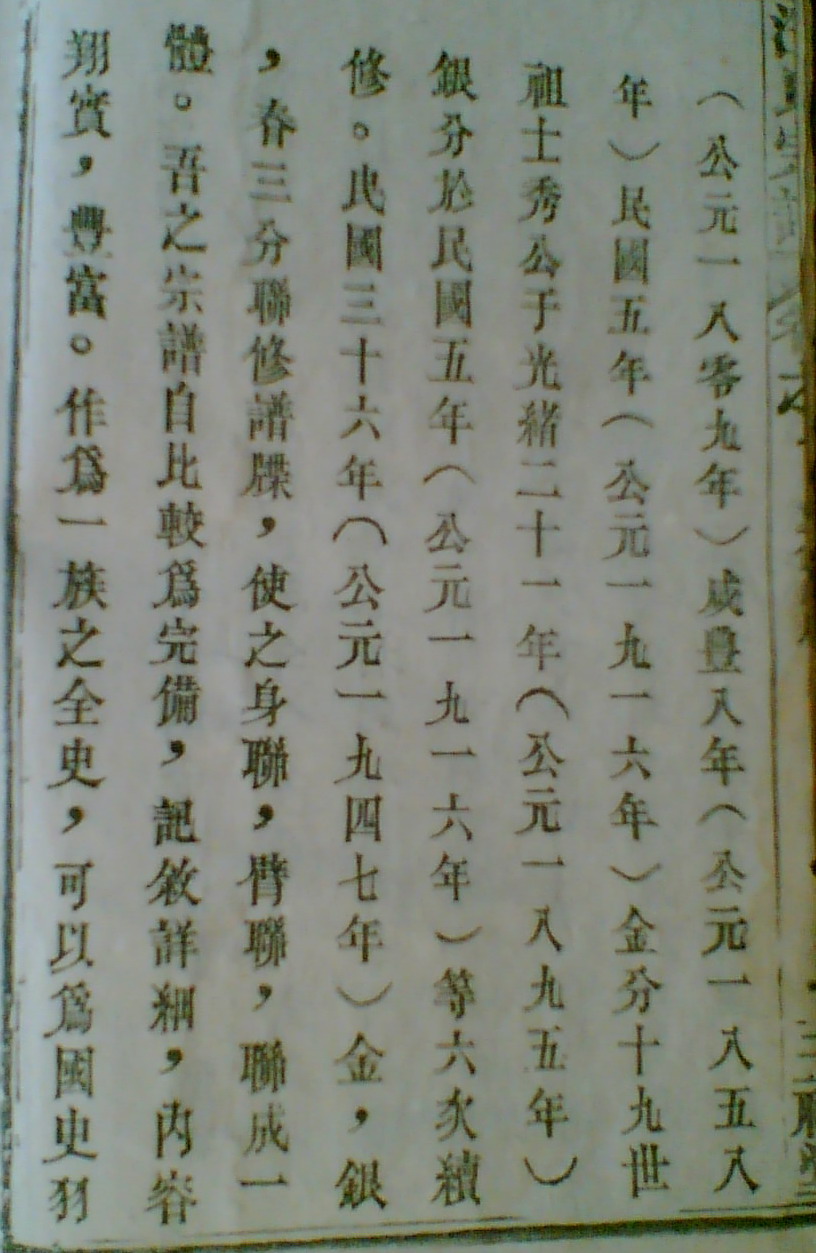 （公元一八零九年）咸豐八年（公元一八五八
年）民國五年（公元一九一六年）金分十九世
祖士秀公于光緒二十一年（公元一八九五年）
銀分於民國五年（公元一九一六年）等六次續
修。民國三十六年（公元一九四七年）金，銀
，春三分聯修譜牒，使之身聯，臂聯，聯成一
體。吾之宗譜自比較爲完備，記敘詳細，内容
翔實，豐富。作爲一族之全史，可以爲國史羽